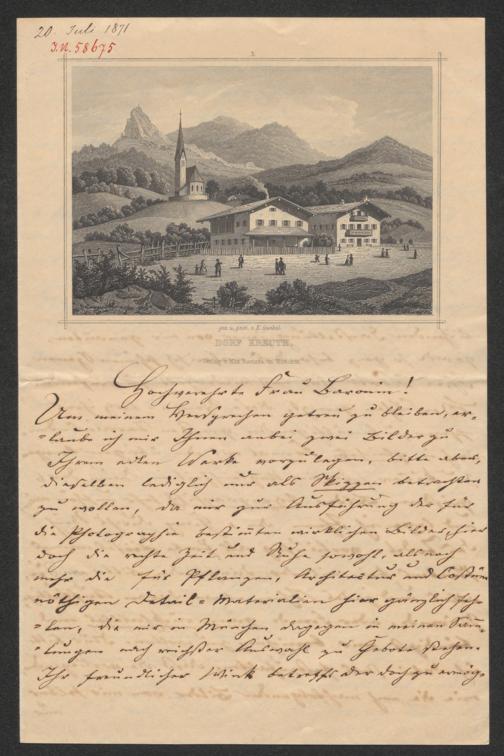 20. Juli 1871
J.N. 58675
gez. u. gest. v.
DORF KREUTH.
Hochverehrte Frau Baronin!
Um meinem Versprechen getreu zu bleiben, er-
=laube ich mir Ihnen anbei zwei Bilder zu
Ihrem edlen Werke vorzulegen, bitte aber,
dieselben lediglich nur als Skizzen betrachten
zu wollen, da mir zur Ausführung der für
die Photographie bestimten wirklichen Bilder, hier
doch die rechte Zeit und Ruhe sowohl, als noch
mehr die für Pflanzen, Architektur und Costüm
nöthigen Detail=Materialien hier gänzlich feh-
=len, die mir in München dagegen in meinen Sam-
=lungen nach reichster Auswahl zu Gebote stehen.
Ihr freundlicher Wink betreffs der doch zu